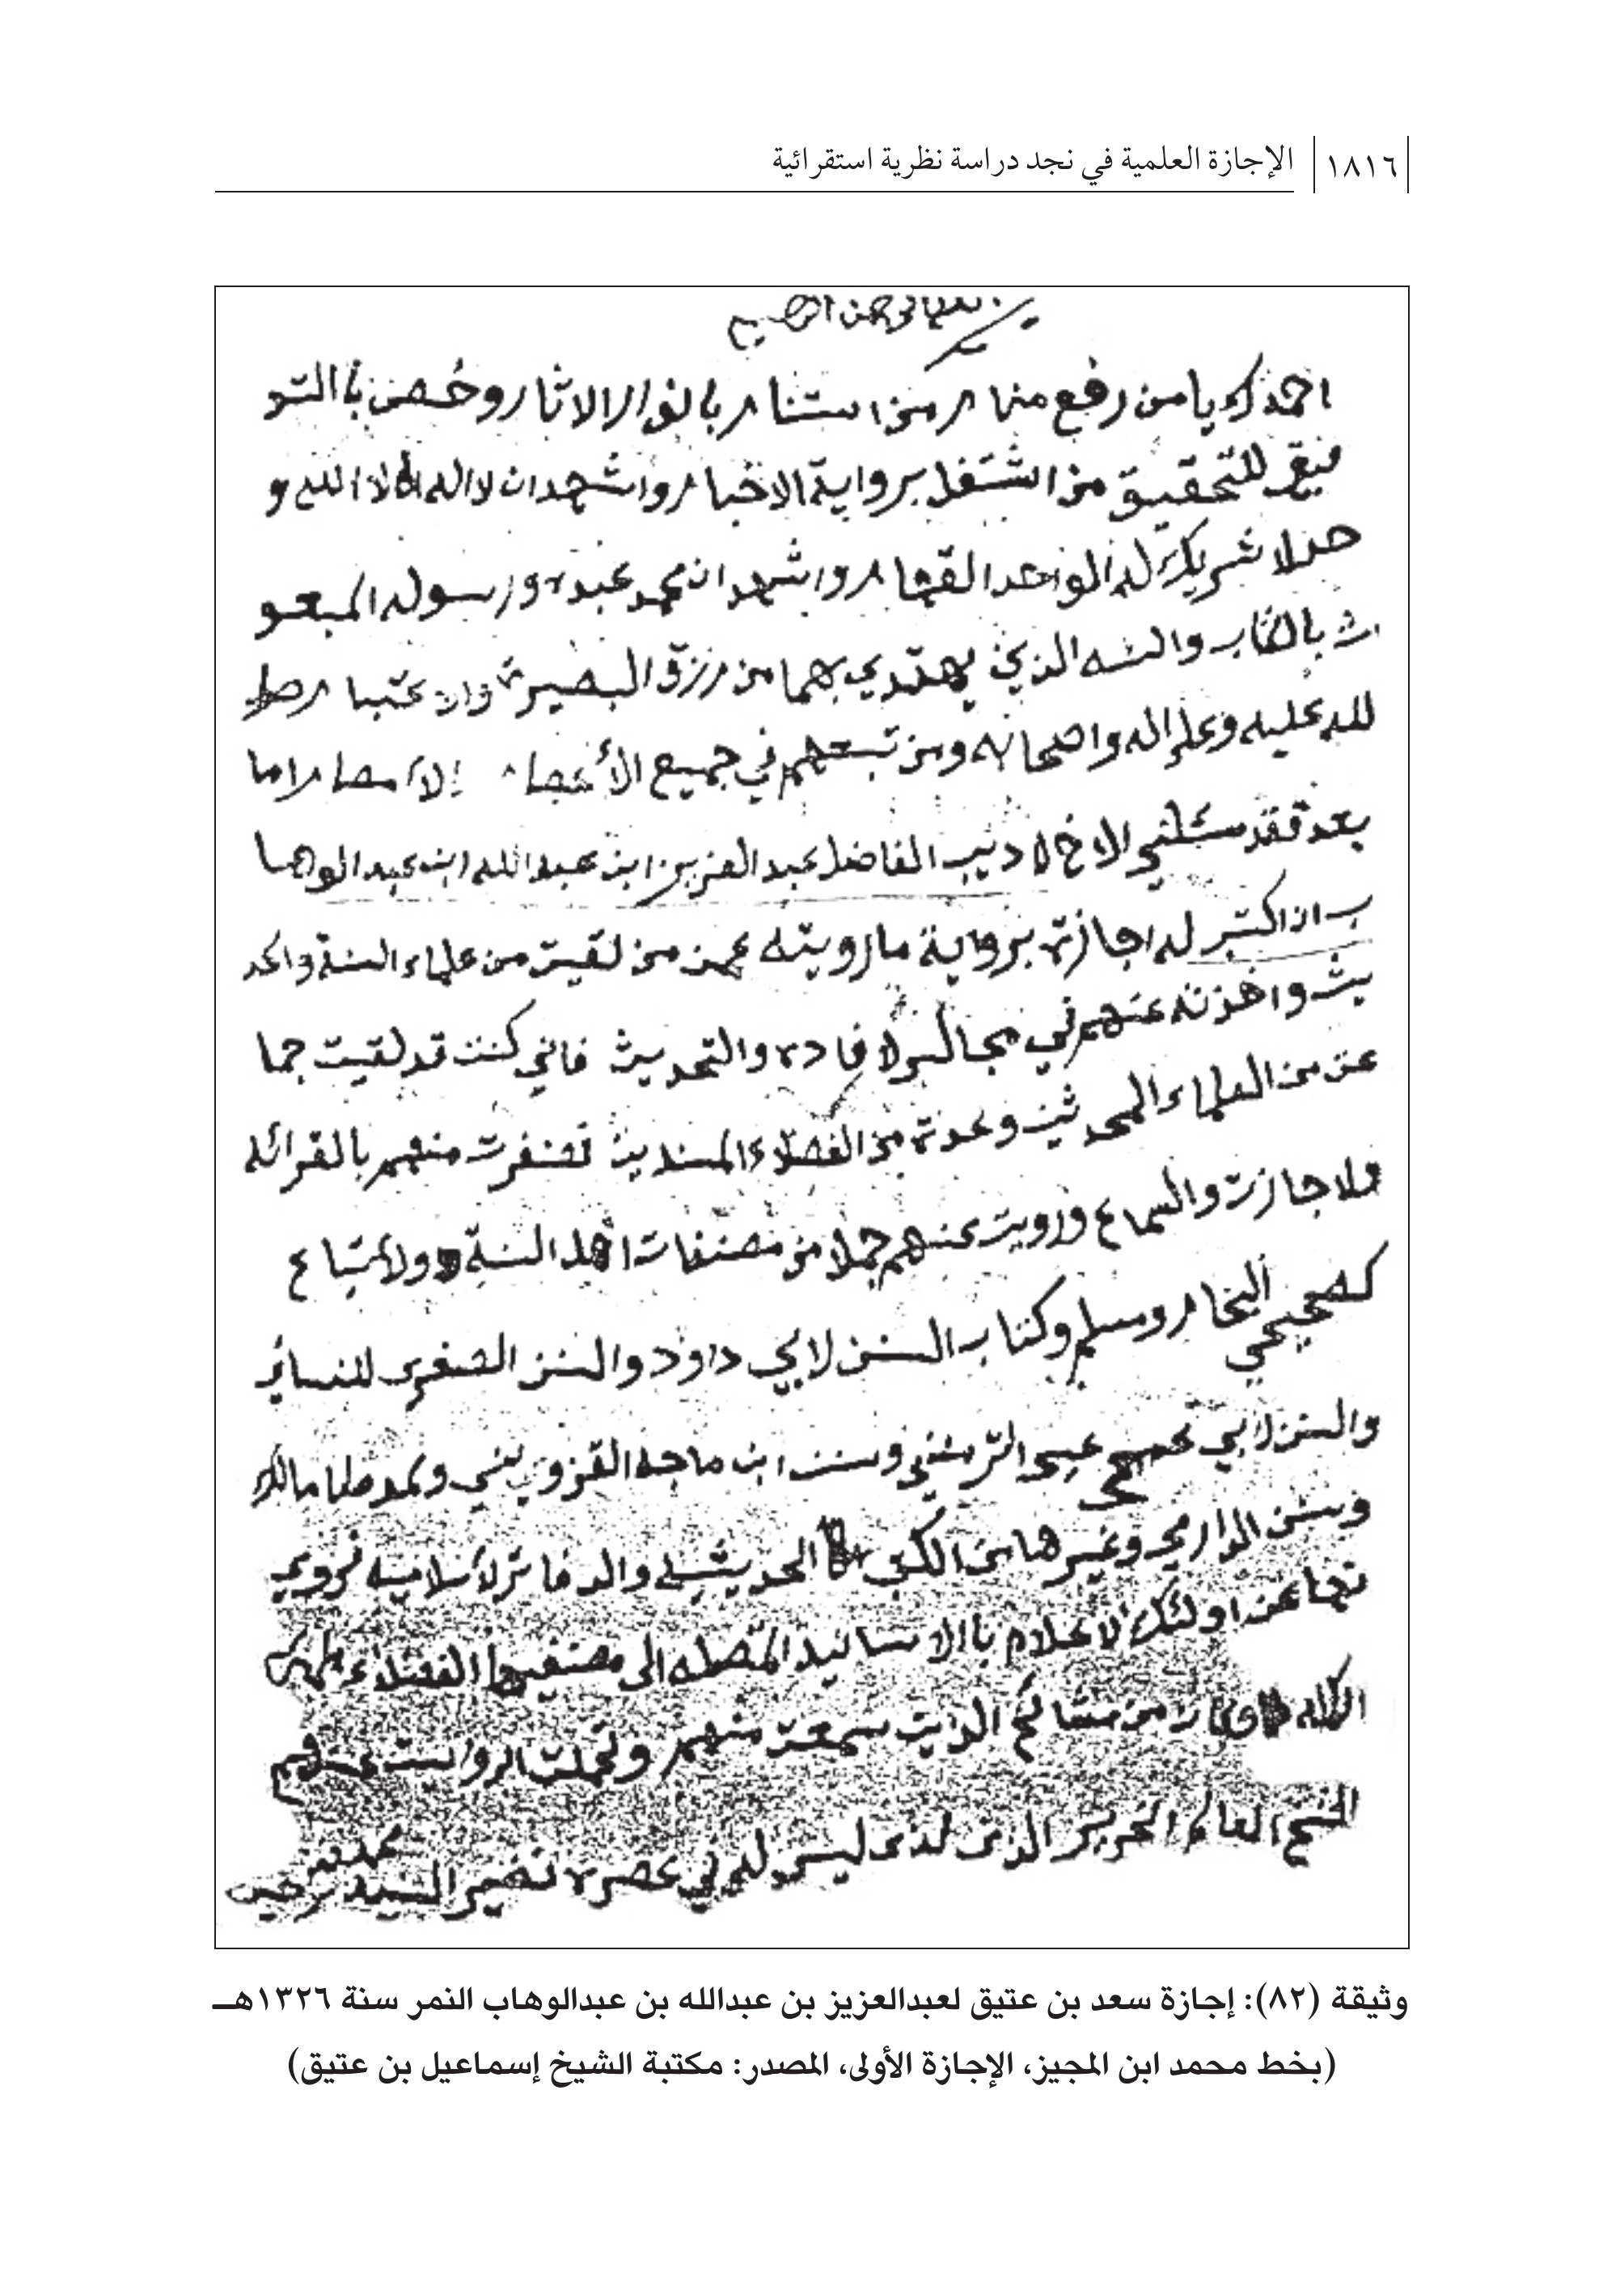 ١٨١٦ الإجازة العلمية في نجد دراسة نظرية استقرائية
بسم الله الرحمن الرحيم
احمدك يا من رفع منار من استنار بانوار الاثار وخص بالتو
فيق للتحقيق من اشتغل برواية الاخبار واشهد ان لا اله الا الله و
حده لا شريك له الواحد القهار واشهد ان محمد عبده ورسوله المبعو
ث بالكتاب والسنه الذي يهتدي بهما من رزق البصيرة والاعتبار صلى
الله عليه وعلى اله واصحابه ومن تبعهم في جميع الأعصار الأمصار اما
بعد فقد سئلني الاخ لاديب الفاضل عبد العزيز ابن عبد الله ابن عبد الوها
ب ان اكتب له اجازة برواية ما رويته عمن من لقيت من علماء السنة والحد
يث واخذته عنهم في مجالس لافاده والتحديث فاني كنت قد لقيت جما
عن من العلماء المحدثين وعدة من الفضلاء المسندين فضفرت منهم بالقرائه
ولاجازت والسماع ورويت عنهم جملا من مصنفات اهل السنة ولاتباع
كصحيحي البخار ومسلم وكتاب السنن لابي داود والسنن الصغرى للنسائي
والسنن لابي عيسى الترمذي وسنن ابن ماجه القزويني و مالك
وسنن الدارمي وغيرها من الكتب الحديثيه والدفاتر لأسلاميه نروي
تها عن اولئك لاعلام باالاسانيد المتصله الى مصنفيها الفضلاء
من مشائخ الذين سمعت منهم وتحملت الروايت عنهم
الشيخ العالم النحرير الذي لذي ليس له في عصره نضير السيد محمد نذير حسين
وثيقة (٨٢): إجازة سعد بن عتيق لعبدالعزيز بن عبدالله بن عبدالوهاب النمر سنة ١٣٢٦هـ
(بخط محمد ابن المجيز، الإجازة الأولى، المصدر: مكتبة الشيخ إسماعيل بن عتيق)